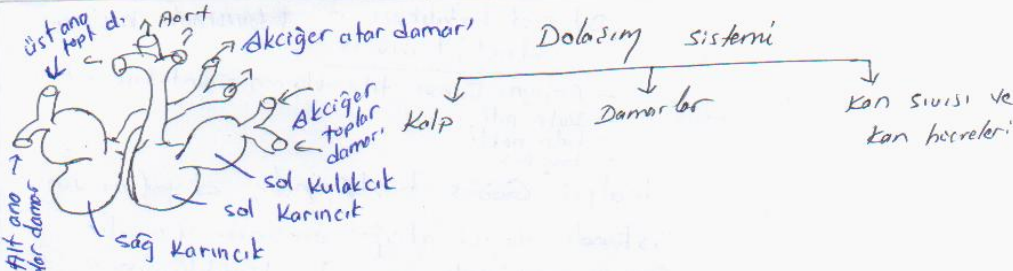 üst ana
topl d.
Aort
Akciğer atar damarı
Akciğer
toplar
damarı
sol kulakcık
sol karıncık
sağ karıncık
Alt ana
lar damar
Dolaşım sistemi
Kalp
Damarlar
Kan sıvısı ve
kan hücreleri